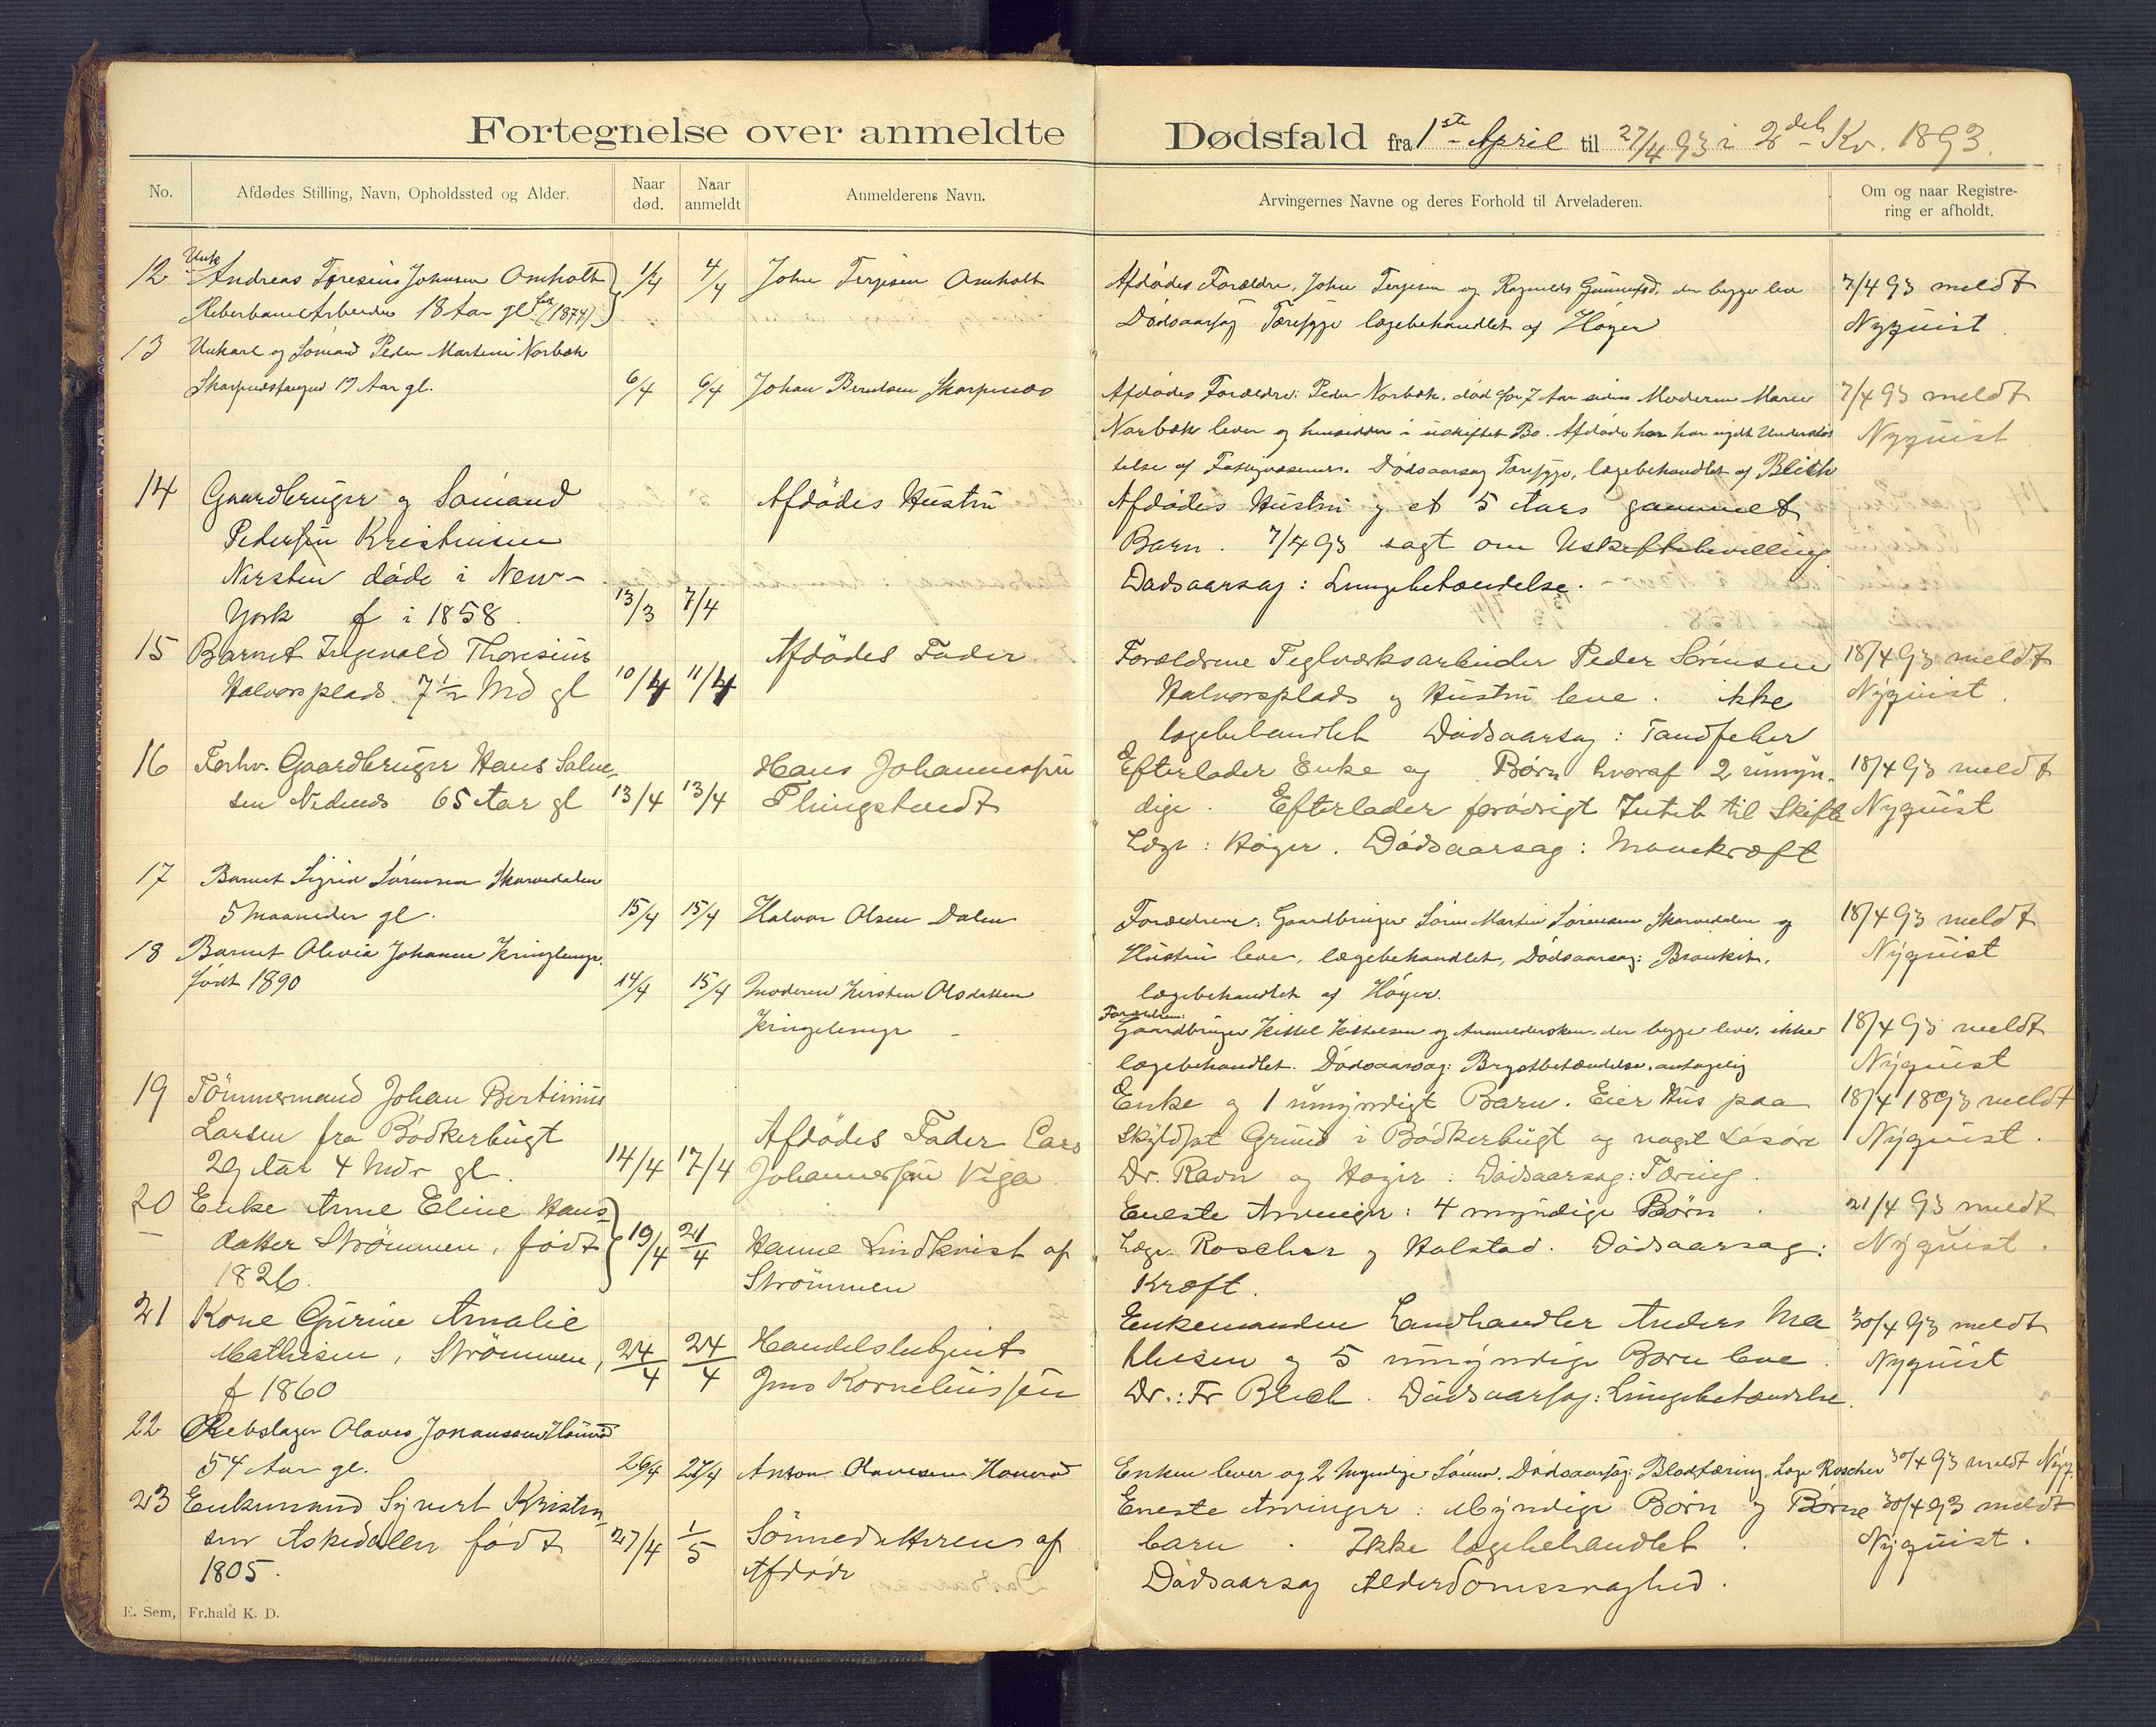 Fortegnelse over anmeldte Dødsfald fra 1ste April til 27/4 93 i 2det Kv. 1893.
No. Afdødes Stilling, Navn, Opholdssted og Alder. Naar død. Naar anmeldt Anmelderens Navn. Arvingernes Navne og deres Forhold til Arveladeren. Om og naar Registrering er afholdt.
12 Unk Andreas Johnsen Omholt
Arbeider 18 Aar gl. (1874)
1/4 4/4 John Terjesen Omholt
Afdødes Forældre, John Terjesen og Ragnild der begge leve
Dødsaarsag Tæresyge lægebehandlet af Høyer
7/4 93 meldt
Nyquist.
13 Unkarl og Sømand Peder Martin Norbæk
19 Aar gl.
6/4 6/4 Johan Berntsen Skarpnes
Afdødes Forældre: Peder Norbæk, død for 7 Aar siden Moderen Maren
Norbæk lever og hensidder i uskiftet Bo. Afdøde har nydt Understøt
telse af Fattigvæsenet. Dødsaarsag Tæresyge, lægebehandlet af Blich
7/4 93 meldt
Nyquist
14 Gaardbruger og Sømand
Pedersen Kristensen
Nersten døde i New-
York f i 1858.
13/3 7/4
Afdødes Hustru
Afdødes Hustru og et 5 Aars gammelt
Barn. 7/4 93 søgt om Uskiftebevilling
Dødsaarsag: Lungebetændelse.
15 Barnet Ingevald Thoresius
Halvorsplads. 7 1/2 Md gl
10/4 11/4 Afdødes Fader
Forældrene Teglværksarbeider Peder Sørensen
Halvorsplads og Hustru leve. ikke
lægebehandlet Dødsaarsag: Tandfeber
18/4 93 meldt
Nyquist.
16 Forhv. Gaardbruger Hans Salve-
sen Nedenes 65 Aar gl
13/4 13/4 Hans Johannessen
Efterlader Enke og Børn hvoraf 2 umyn-
dige. Efterlader forøvrigt Intet til Skifte
Læge: Høyer. Dødsaarsag: Mavekræft
18/4 93 meldt
Nyquist
17 Barnet Sigrid Sørensen Skarvedalen
5 Maaneder gl.
15/4 15/4 Halvor Olsen Dalen
Forældrene: Gaardbruger Søren Martin Sørensen Skarvedalen og
Hustru lever, lægebehandlet, Dødsaarsag: Bronkit,
lægebehandlet af Høyer.
18/4 93 meldt
Nyquist
18 Barnet Olevia Johanne Kringlemyr
født 1890
14/4 15/4 Moderen Kirsten Olsdatter
Kringlemyr -
Forældrene:
Gaardbruger Kittel Kittelsen og Anmeldersken, der begge lever. ikke
lægebehandlet. Dødsaarsag: Brystbetændelse, antagelig
18/4 93 meldt
Nyquist
19 Tömmermand Johan Bertinius
Larsen fra Bödkerbugt
29 Aar 4 Mdr gl.
14/4 17/4 Afdødes Fader Lars
Johannessen Viga
Enke og 1 umyndigt Barn. Eier Hus paa
Skyldsat Grund i Bödkerbugt og noget Løsøre
Dr. Ravn og Høyer: Dødsaarsag: Tæring.
18/4 1893 meldt
Nyquist.
20 Enke Anne Eline Hans-
datter Strømmen, født
1826.
19/4 21/4 Hanne Lindkvist af
Strømmen
Eneste Arvinger: 4 myndige Børn.
Læge Roscher og Halstad. Dødsaarsag:
Kræft.
21/4 93 meldt
Nyquist.
21 Kone Gurine Amalie
Mathisen, Strømmen,
f 1860
24/4 24/4 Handelsbetjent
Jens Korneliussen
Enkemanden Landhandler Anders Ma
thisen og 5 umyndige Børn leve.
Dr.: Fr Blich. Dødsaarsag: Lungebetændelse.
30/4 93 meldt
Nyquist
22 Rebslager Olaves Jonanssen
54 Aar gl.
26/4 27/4 Anton Olavesen
Enken lever og 2 Myndige Sønner. Dødsaarsag: Blodtæring, Læge Roscher
30/4 93 meldt Nyq.
23 Enkemand Syvert Kristen-
sen Askedalen født
1805.
27/4 1/5 Sönnedatteren af
Afdøde
Eneste Arvinger: Myndige Børn og Børne
barn. Ikke lægebehandlet.
Dødsaarsag Alderdomssvaghed.
30/4 93 meldt
Nyquist.
E. Sem, Fr.hald K. D.